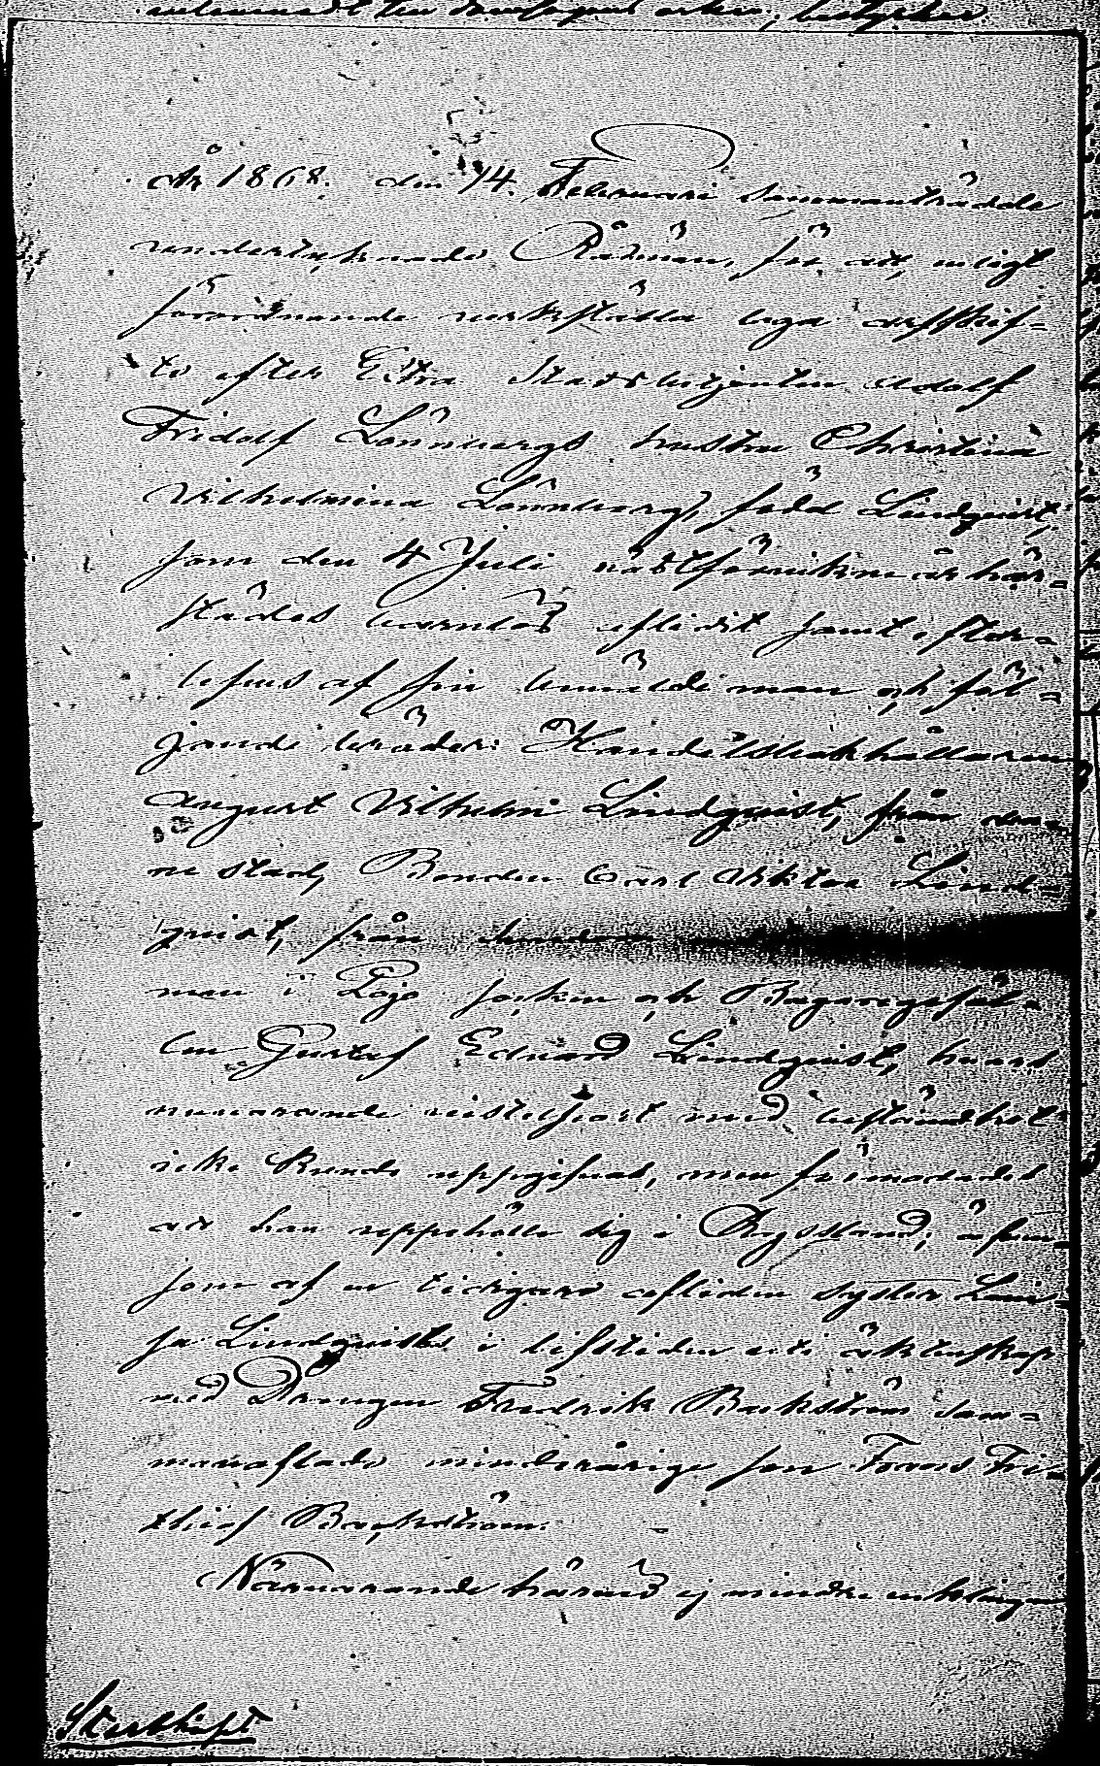 År 1868. den 14. Februari sammanträdde
undertecknade Rådmän, för att, enligt
förordnande verkställa laga arfskif-
te efter Extra Stadsbetjenten Adolf
Fridolf Lönnbergs hustru Christina
Vilhelmina Lönnberg, född Lindqvist,
som den 4 Juli nästförvikne år här-
städes barnlös aflidit samt efter-
lefvas af sin bemälde man och föl-
jande bröder: Handelsbokhållaren
August Vilhelm Lindqvist, från den-
na stad, Bonden Carl Viktor Lind-
qvist, från
man i Lojo socken och Bagaregesäl-
len Gustaf Eduard Lindqvist, hvars
nuvarande vistelseort med bestämdhet
icke kunde uppgifvas, men förmodades
att han uppehåller sig i Ryssland; äfven-
som af en tidigare afliden syster Lovi-
sa Lindqvists i lifstiden uti äktenskap
med Drengen Fredrik Backström sam-
manaflade minderårige son Frans Fri-
thiof Backström.
Närvarande härvid ej mindre enklingen